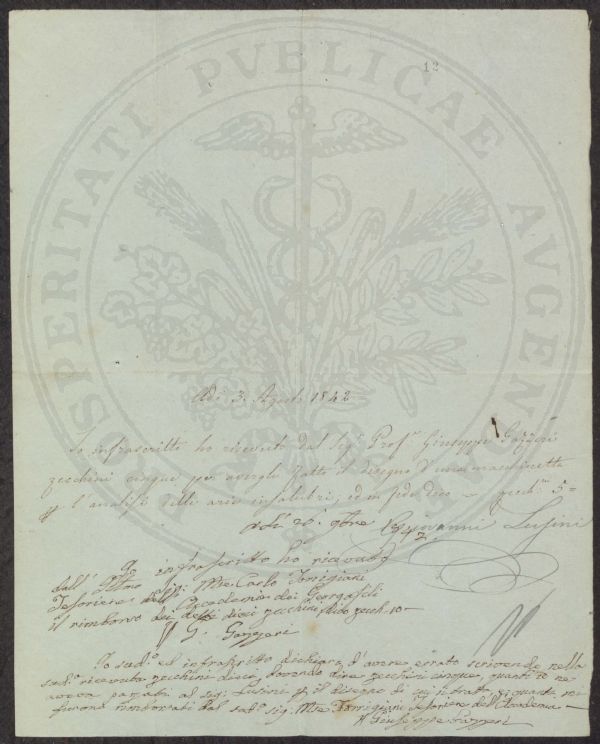 PROSPERITATI PVBLICAE AVGENDAE
12
Adì 3. Agosto 1842
Io infrascritto ho ricevuto dal Sigr. Profr. Giuseppe Gazzeri
zecchini cinque per avergli fatto il disegno d'una macchinetta
p l'analisi delle arie insalubri, ed in fede dico = zecchni 5 =
Giovanni Lusini
Adì 20. 9bre 1842.
Io infrascritto ho ricevuto
dall' Illmo Sig. Mse. Carlo Torrigiani
Tesoriere dell' Accademia dei Georgofili
il rimborso dei detti dieci zecchini, dico zecch. 10 =
G. Gazzeri
Io sudo. ed infrascritto dichiaro d'avere errato scrivendo nella
suda. ricevuta zecchini dieci, dovendo dire zecchini cinque, quanti io ne
aveva pagati al sig. Lusini p il disegno di cui si tratta, e quanti mi
furono rimborsati dal sudo. sig. Mse Torrigiani Tesoriere dell' Accademia =
Giuseppe Gazzeri